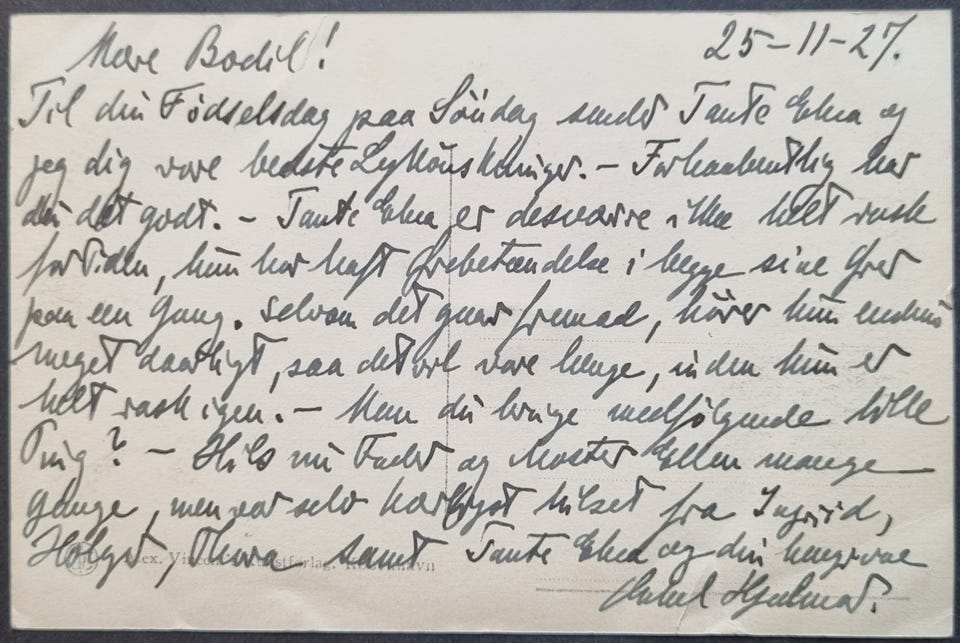 Kære Bodil!
25-11-27.
Til din Födselsdag paa Söndag sender Tante Elna og
jeg dig vore bedste Lykönskninger. - Forhaabentlig har
du det godt. - Tante Elna er desværre ikke helt rask
for Tiden, hun har haft Örebetændelse i begge sine Örer
paa een Gang. Selvom det gaar fremad, hörer hun endnu
meget daarligt, saa det vil vare længe, inden hun er
helt rask igen. - Kan du bruge medfölgende lille
Ting? - Hils din Fader og Moster Ellen mange
Gange, men vær selv kærligst hilset fra Ingrid,
Holger, Thora samt Tante Elna og din hengivne
Onkel Hjalmar.
Alex. Vincents Kunstforlag, København